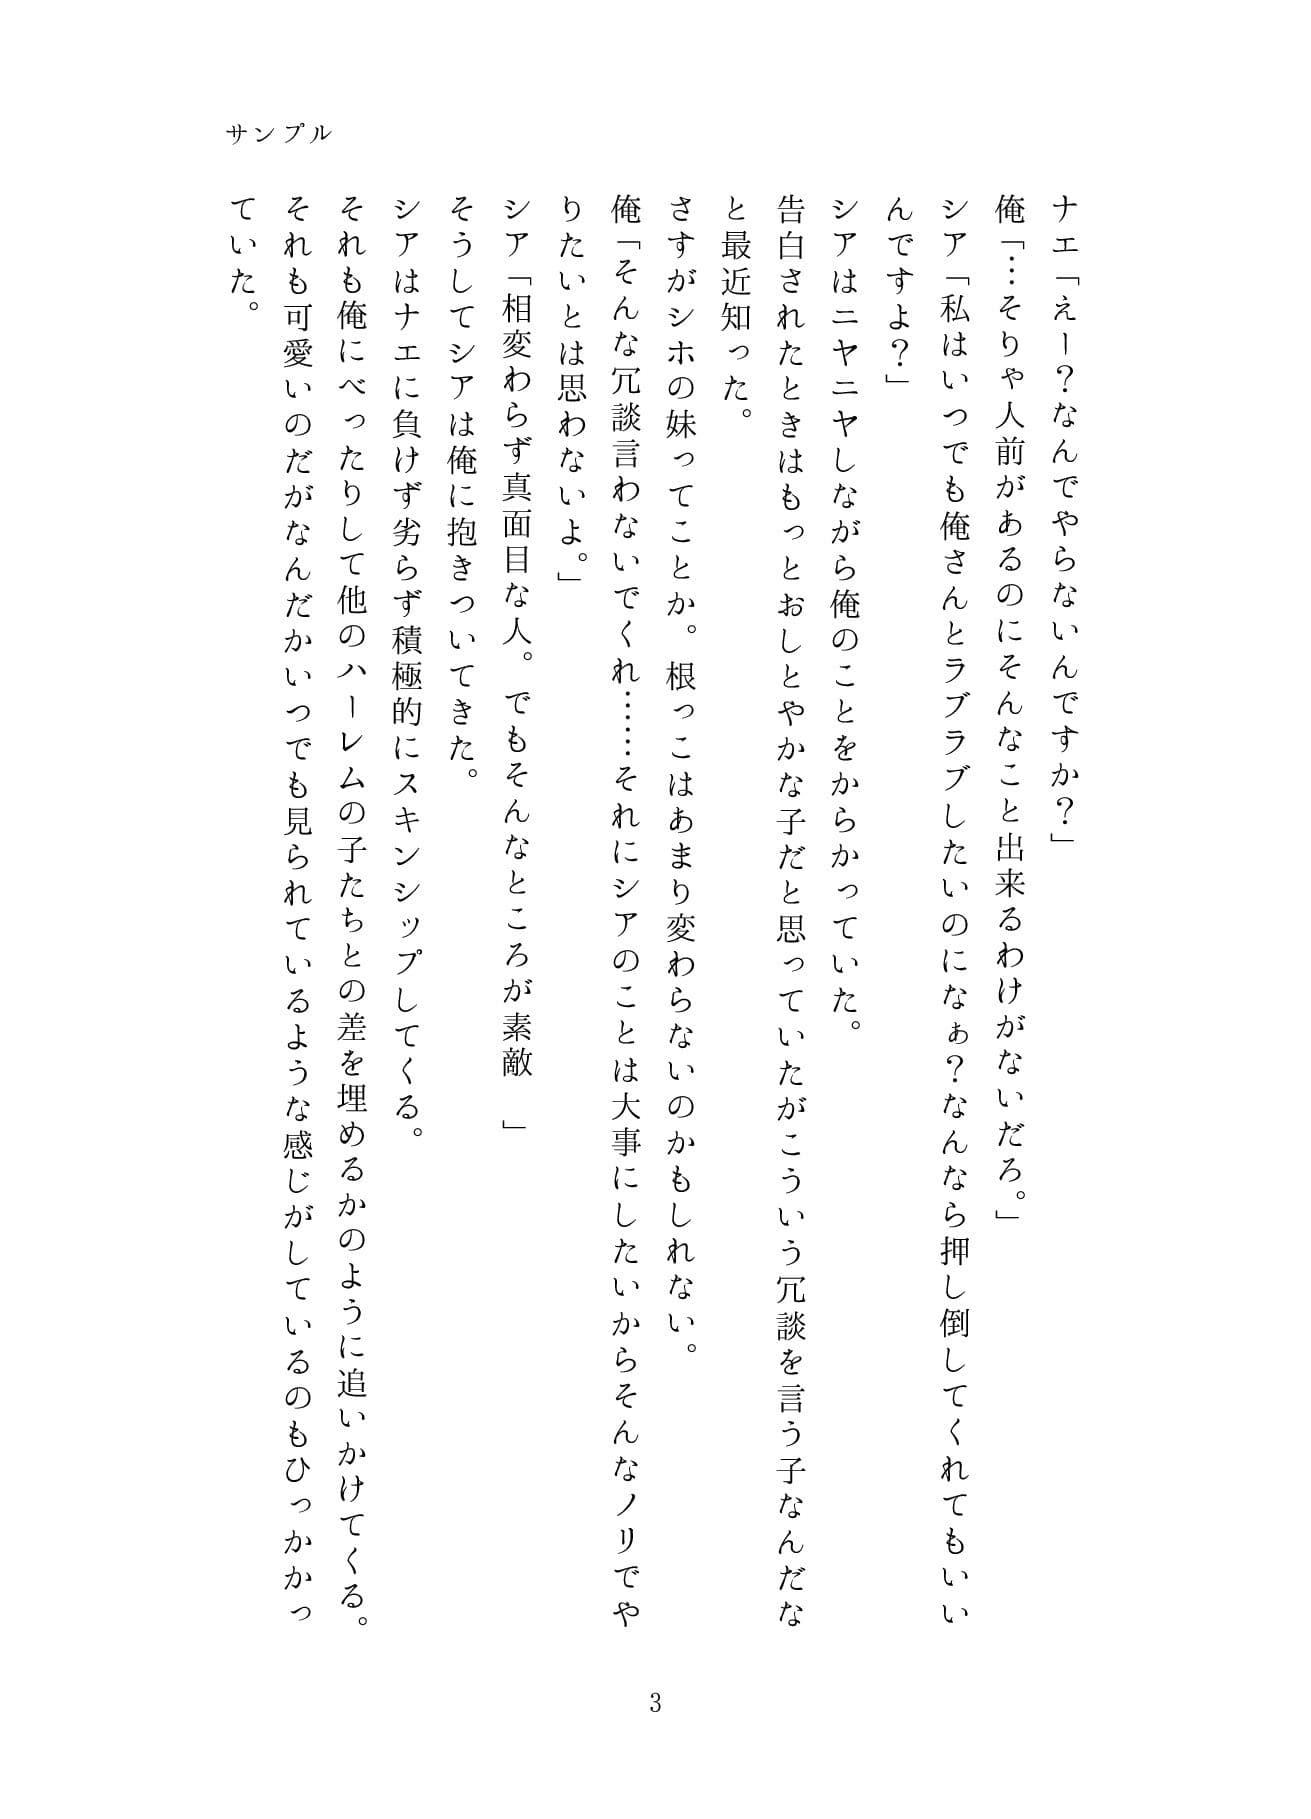 サンプル
ナエ「えー？なんでやらないんですか？」
俺「…そりゃ人前があるのにそんなこと出来るわけがないだろ。」
シア「私はいつでも俺さんとラブラブしたいのになぁ？なんなら押し倒してくれてもいい
んですよ？」
シアはニヤニヤしながら俺のことをからかっていた。
告白されたときはもっとおしとやかな子だと思っていたがこういう冗談を言う子なんだな
と最近知った。
さすがシホの妹ってことか。根っこはあまり変わらないのかもしれない。
俺「そんな冗談言わないでくれ……それにシアのことは大事にしたいからそんなノリでや
りたいとは思わないよ。」
シア「相変わらず真面目な人。でもそんなところが素敵　」
そうしてシアは俺に抱きついてきた。
シアはナエに負けず劣らず積極的にスキンシップしてくる。
それも俺にべったりして他のハーレムの子たちとの差を埋めるかのように追いかけてくる。
それも可愛いのだがなんだかいつでも見られているような感じがしているのもひっかかっ
ていた。
3